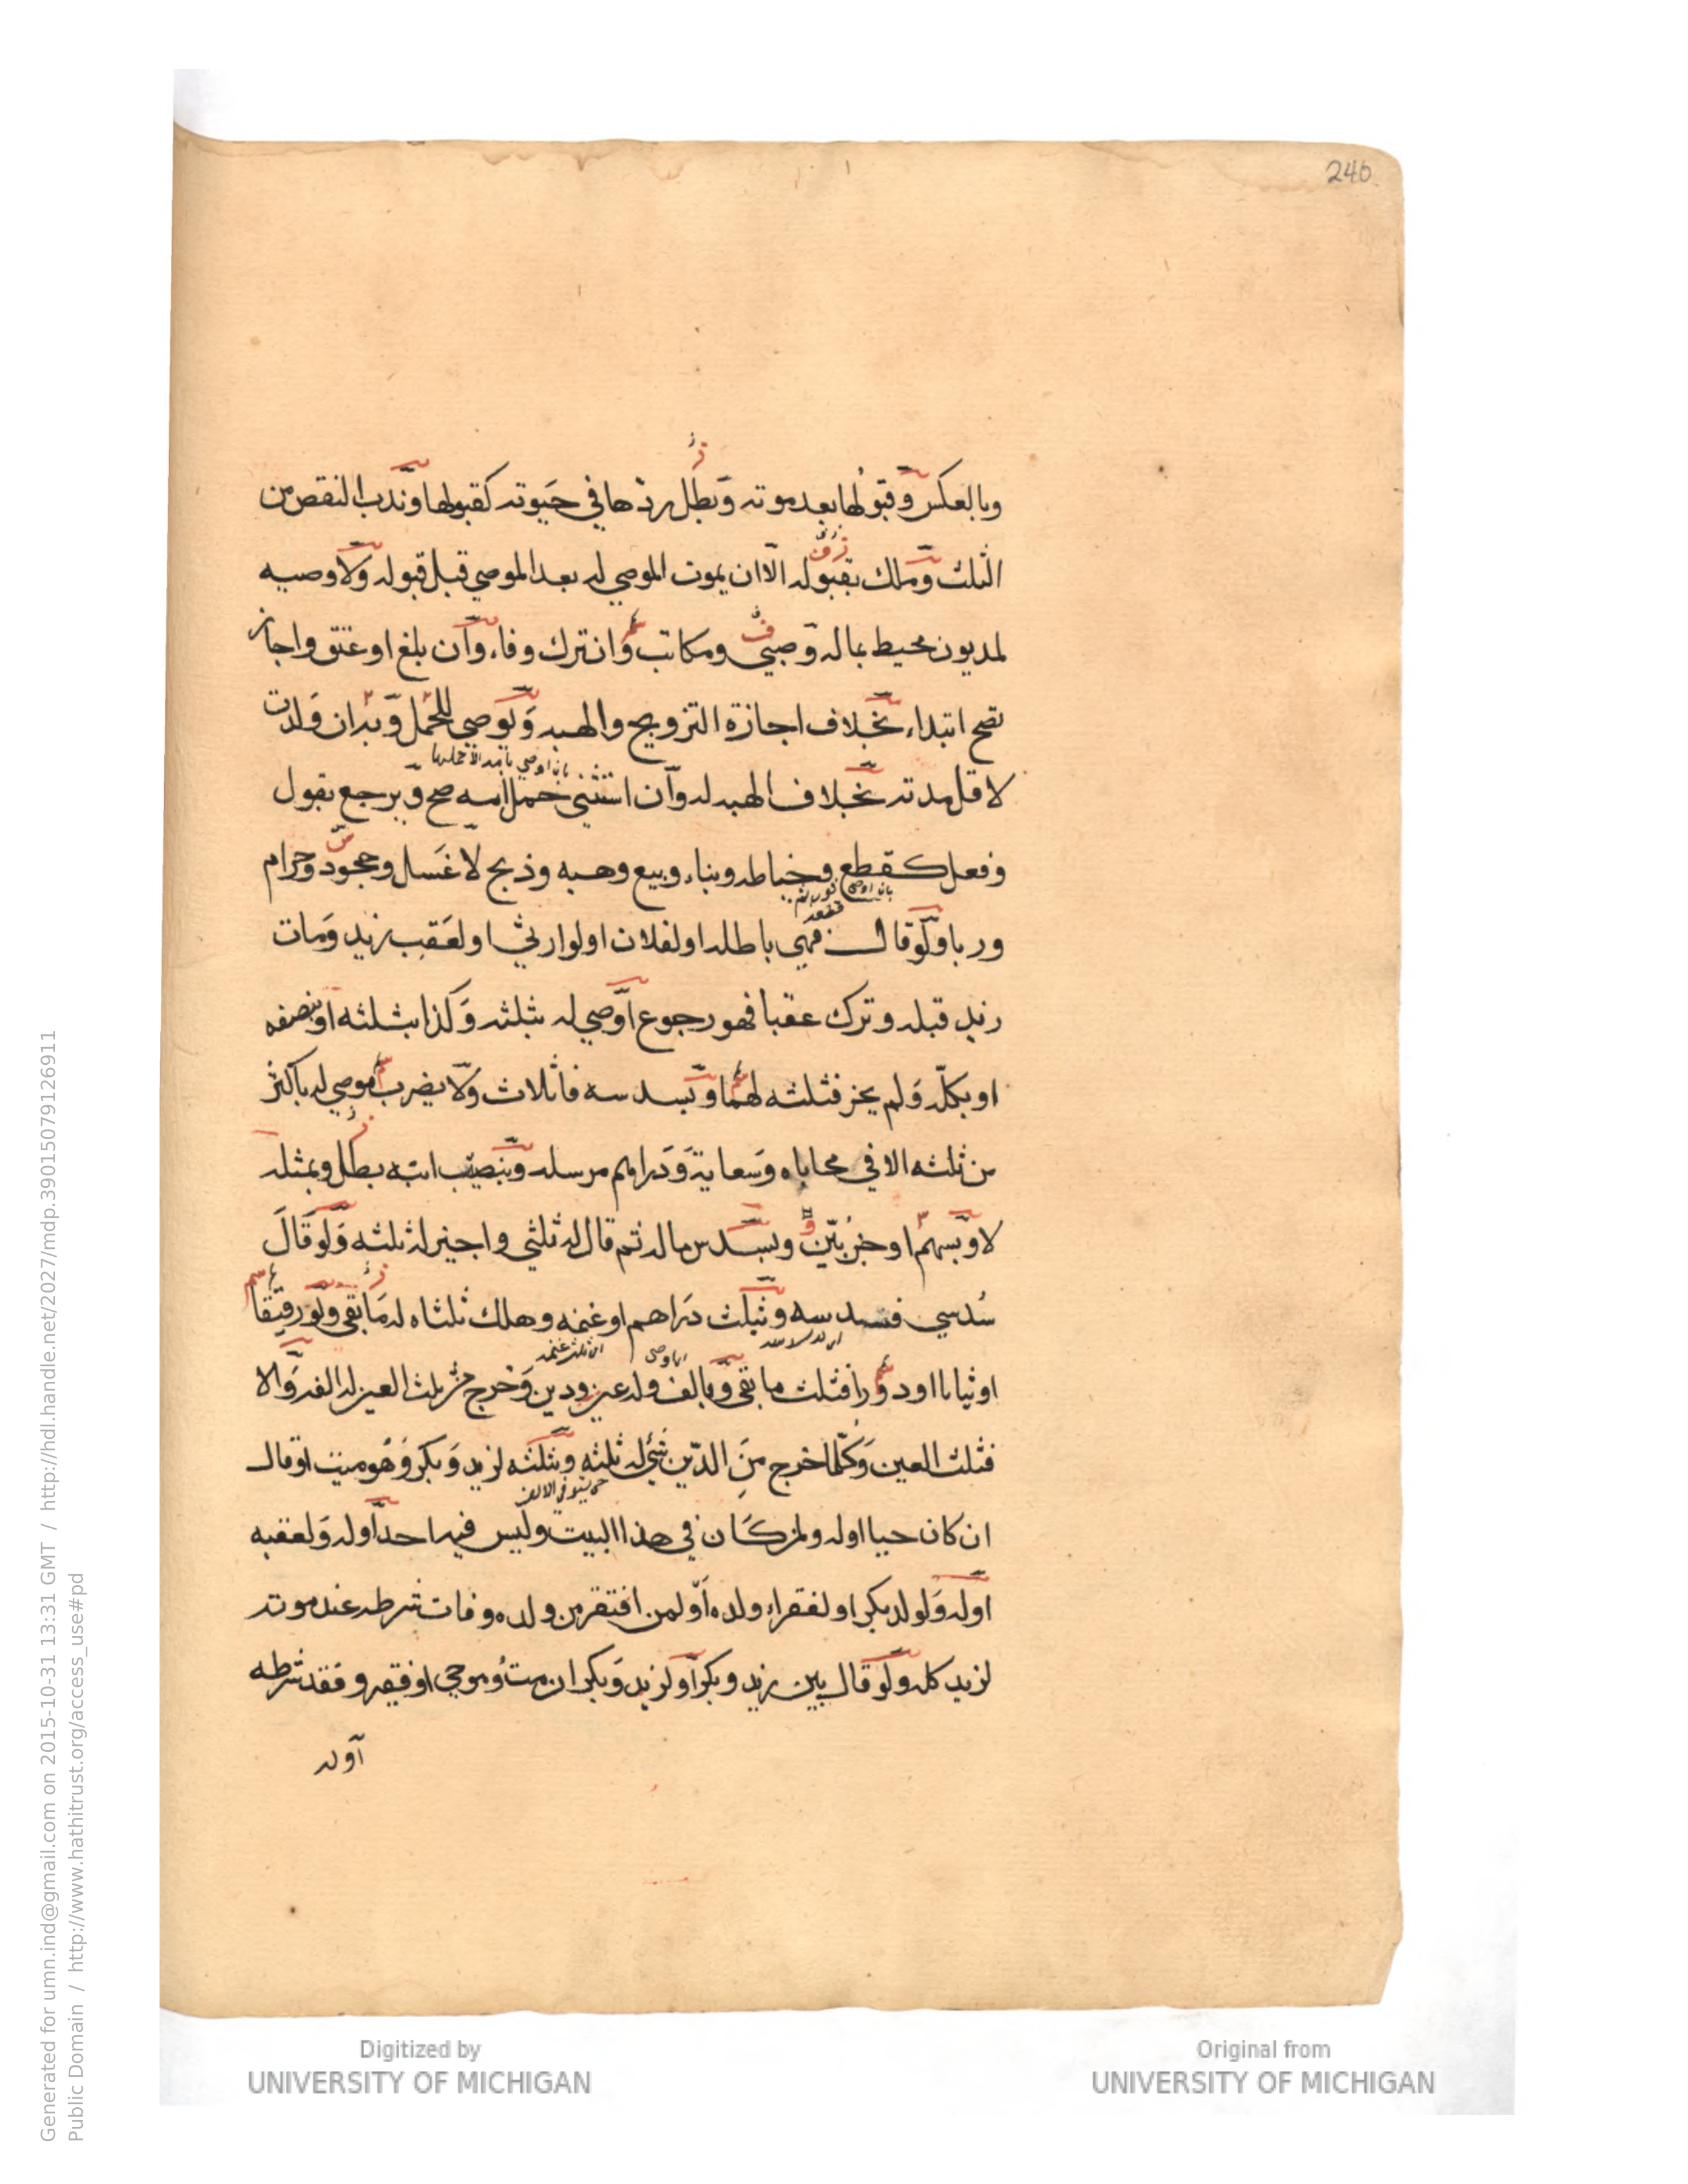 240
وبالعكس وقبولها بعد موته وبطل ردها في حيوته كقبولها وندب النقص من
الثلث وملك بقبوله الا ان يموت الموصي له بعد الموصي قبل قبوله ولا وصيه
لمديون محيط بماله وصبي ومكاتب وان ترك وفاء وان بلغ او عتق واجاز
تصح ابتداء بخلاف اجازة التزويج والهبه ولو صي للحمل وبه ان ولدت
لاقل مدته بخلاف الهبه له وان استثني حمل امه صح ويرجع بقول
وفعل كقطع وخياطه وبناء وبيع وهبه وذبح لا غسل وجحود وحرام
وربا ولو قال فهي باطله او لفلان او لوارثي او لعقب زيد ومات
زيد قبله وترك عقبا فهو رجوع اوصي له بثلثه وكذا بثلثه او بنصفه
او بكله ولم يجز فثلثه لهما وبسدسه فاثلاث ولا يضرب موصي له باكثر
من ثلثه الا في محاباه وسعاية ودراهم مرسله وبنصيب ابنه بطل وبمثله
لا وبسهم او جز بين وبسدس ماله ثم قال له ثلثي واجيز له ثلثه ولو قال
سدسي فسدسه وبثلث دراهم او غنمه وهلك ثلثاه له ما بقي ولو رقيقا
او ثيابا او دورا فثلث ما بقي وبالف وله عين ودين وخرج من ثلث العين له الف والا
فثلث العين وكلما خرج من الدين شئ له ثلثه وبثلثه لزيد وبكر وهو ميت او قال
ان كان حيا او له ولمن كان في هذا البيت وليس فيه احد او له ولعقبه
او له ولولد بكر او لفقراء ولده او لمن افتقر من ولده وفات شرطه عند موته
لزيد كله ولو قال بين زيد وبكر او لزيد وبكر ان مت وهو حي او فقير وفقد شرطه
او له
Digitized by
UNIVERSITY OF MICHIGAN
Original from
UNIVERSITY OF MICHIGAN
Generated for umn.ind@gmail.com on 2015-10-31 13:31 GMT / http://hdl.handle.net/2027/mdp.39015079126911
Public Domain / http://www.hathitrust.org/access_use#pd